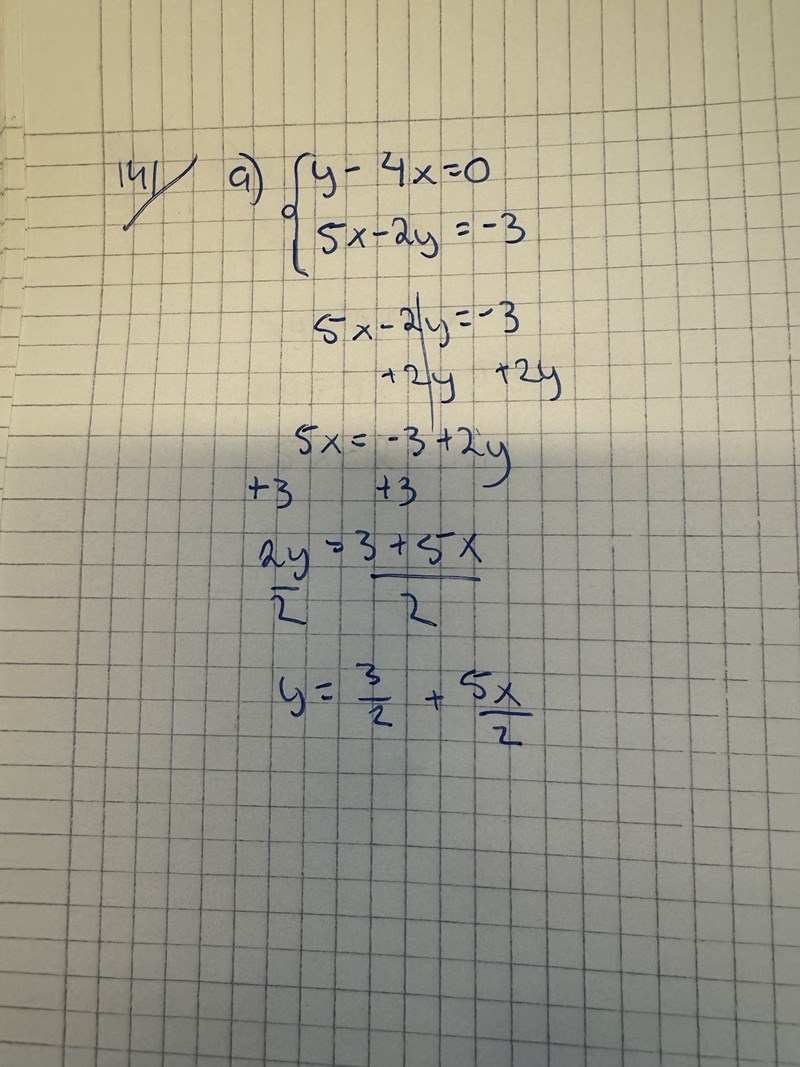 141/ a) { y - 4x = 0
5x - 2y = -3
5x - 2y = -3
+2y +2y
5x = -3 + 2y
+3 +3
2y = 3 + 5x
2 2
y = 3/2 + 5x/2